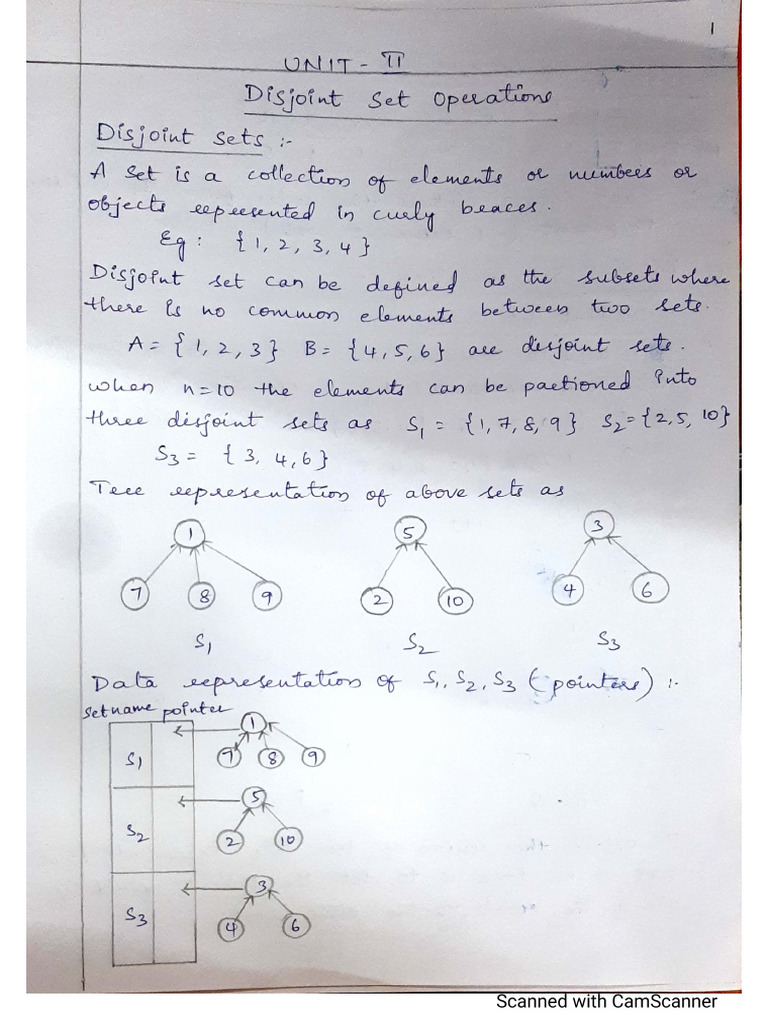 1
UNIT - II
Disjoint Set Operations
Disjoint sets :-
A set is a collection of elements or numbers or
objects represented in curly braces.
Eg : {1, 2, 3, 4}
Disjoint set can be defined as the subsets where
there is no common elements between two sets.
A = {1, 2, 3} B = {4, 5, 6} are disjoint sets.
when n=10 the elements can be partioned into
three disjoint sets as S1 = {1, 7, 8, 9} S2 = {2, 5, 10}
S3 = {3, 4, 6}
Tree representation of above sets as
1 5 3
7 8 9 2 10 4 6
S1 S2 S3
Data representation of S1, S2, S3 (pointers) :-
setname pointer
1
S1 7 8 9
5
S2 2 10
3
S3 4 6
Scanned with CamScanner